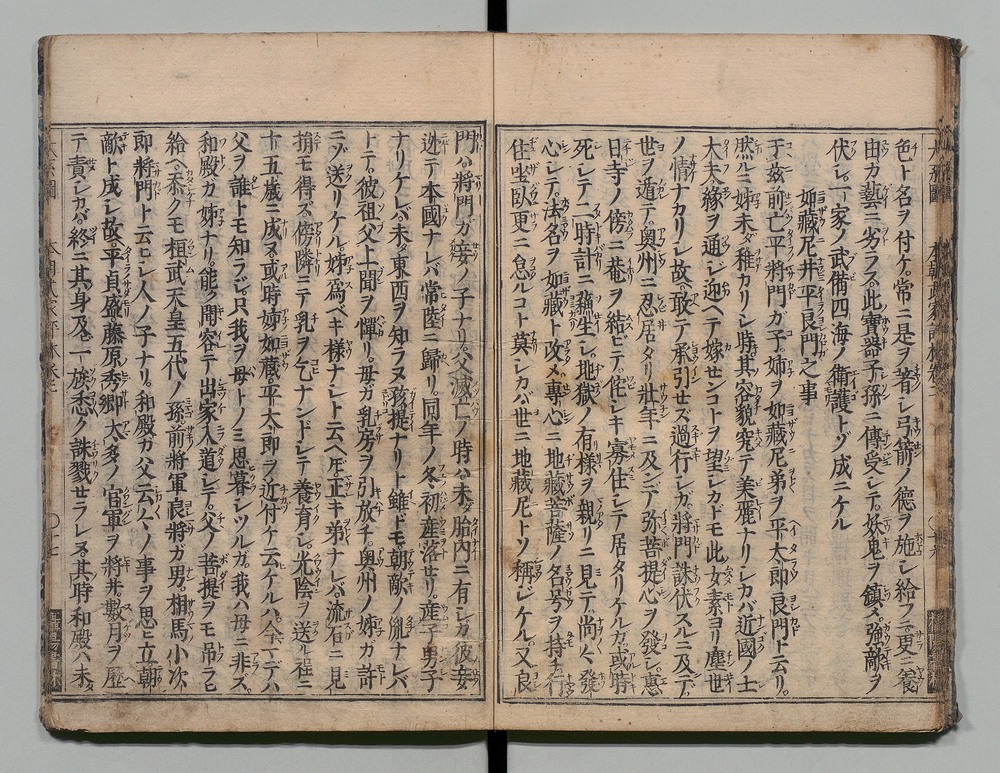 色ト名ヲ付ケ。常ニ是ヲ著シ弓箭ノ徳ヲ施シ給フニ更ニ養
由カ藝ニ劣ラス。此寳器子孫ニ傳受シテ。妖鬼ヲ鎮メ。強敵ヲ
伏シ。一家ノ武備四海ノ衛護トゾ成ニケル
如藏尼并平良門之事
于茲前亡平將門ガ子姉ヲ如藏尼弟ヲ平太郎良門ト云リ。
然ルニ姉未ダ稚カリシ時。其容貌究テ美麗ナリシカバ近國ノ士
大夫縁ヲ通シ迎ヘテ嫁センコトヲ望シカドモ此女素ヨリ塵世
ノ情ナカリシ故。敢テ承引セズ過行シガ。將門誅伏スルニ及ンデ
世ヲ遁テ奥州ニ忍居タリ。壯年ニ及ンデ弥菩提心ヲ發シ。惠
日寺ノ傍ニ菴ヲ結ビテ。侘シキ寡住シテ居タリケルガ。或時
死シテ一二時計ニ穐生シ。地獄ノ有様ヲ親リニ見テ。尚々發
心シテ。法名ヲ如藏ト改メ。專心ニ地藏菩薩ノ名号ヲ持チ。行
住坐臥更ニ怠ルコト莫レカバ。世ニ地藏尼トソ稱シケル。又良
門ハ將門ガ妾ノ子ナリ。父滅亡ノ時ハ。未ダ胎内ニ有シカ彼妾
逃テ本國ナレバ常陸ニ歸リ。同年ノ冬初産落セリ。産子男子
ナリケレバ未ダ東西ヲ知ラヌ孩提ナリト雖ドモ。朝敵ノ胤ナレバ
トテ。彼祖父上聞ヲ憚リ。母ガ乳房ヲ引放チ。奥州ノ姉ガ許
ニゾ送リケル。姉爲ベキ様ナレト云ヘ圧正キ弟ナレバ。流石ニ見
捐モ得ズ。傍隣ニテ乳ヲ乞ナンドレテ養育シ。光陰ヲ送ル程ニ
十五歳ニ成ヌ。或時姉如藏。平太郎ヲ近付ケ云ケルハ。今マデハ
父ヲ誰トモ知ラシ只我ヲ母トノミ思暮レツルガ。我ハ母ニ非ズ。
和殿カ姉ナリ。能ク聞容テ出家入道シテ。父ノ菩提ヲモ吊ラヒ
給ヘ。忝クモ相武天皇五代ノ孫前將軍良將ガ男。相馬小次
郎將門ト云ヒシ人ノ子ナリ。和殿カ父云々ノ事ヲ思ヒ立朝
敵ト成シ故。平貞盛藤原秀郷大多ノ官軍ヲ將并。數月ヲ歷
テ責シカバ。終ニ其身及ビ一族悉ク誅戮セラレヌ。其時和殿ハ未